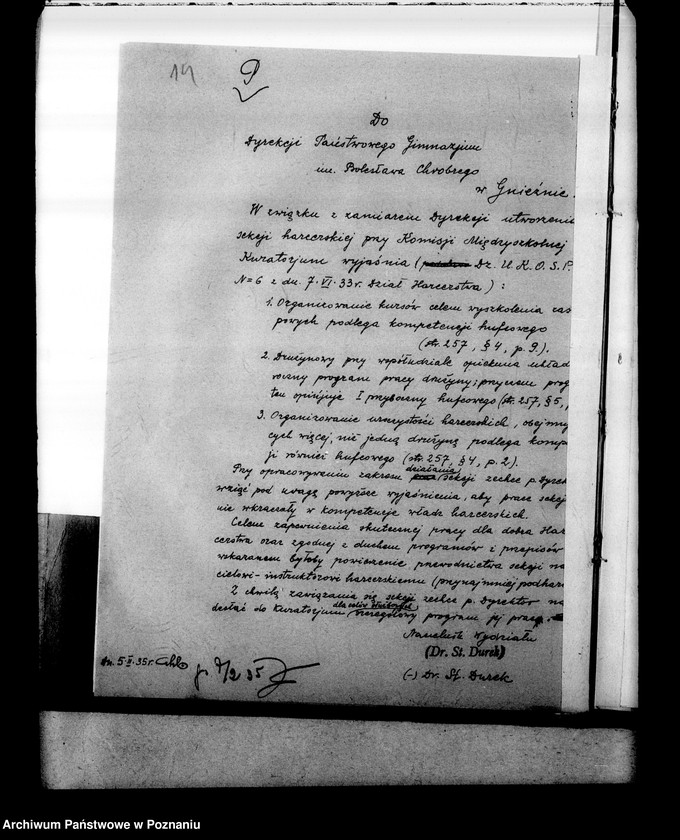 14
P
Do
Dyrekcji Państwowego Gimnazjum
im. Bolesława Chrobrego
w Gnieźnie.
W związku z zamiarem Dyrekcji utworzenia
sekcji harcerskiej przy Komisji Międzyszkolnej
Kuratorjum wyjaśnia ( Dz. U. K. O. S. P.
N=6 z dn. 7.VI.33 r. Dział Harcerstwa) :
1. Organizowanie kursów celem wyszkolenia zas
powych podlega kompetencji hufcowego
(str. 257, § 4, p. 9.).
2. Drużynowy przy współudziale opiekuna układ
roczny program pracy drużyny; przyczem prog
ten opinjuje I przyboczny hufcowego (str. 257, § 5,
3. Organizowanie uroczystości harcerskich, obejmu
cych więcej, niż jedną drużynę podlega kompe
ji również hufcowego (str. 257, § 4, p. 2.).
Przy opracowywaniu zakresu działania sekcji zechce p. Dyrek
wziąć pod uwagę powyższe wyjaśnienia, aby praca sekcji
nie wkraczała w kompetencje władz harcerskich.
Celem zapewnienia skutecznej pracy dla dobra Har
cerstwa oraz zgodnej z duchem programów i przepisów
wskazanem byłoby powierzenie przewodnictwa sekcji na
cielowi-instruktorowi harcerskiemu (przynajmniej podharc
Z chwilą zawiązania się sekcji zechce p. Dyrektor na
desłać do Kuratorjum dla celów służbowych szczegółowy program jej pracy.
Naczelnik Wydziału
(Dr. St. Durek)
(-) Dr. St. Durek
dn. 5.II.35 r.
7/2 35
Archiwum Państwowe w Poznaniu